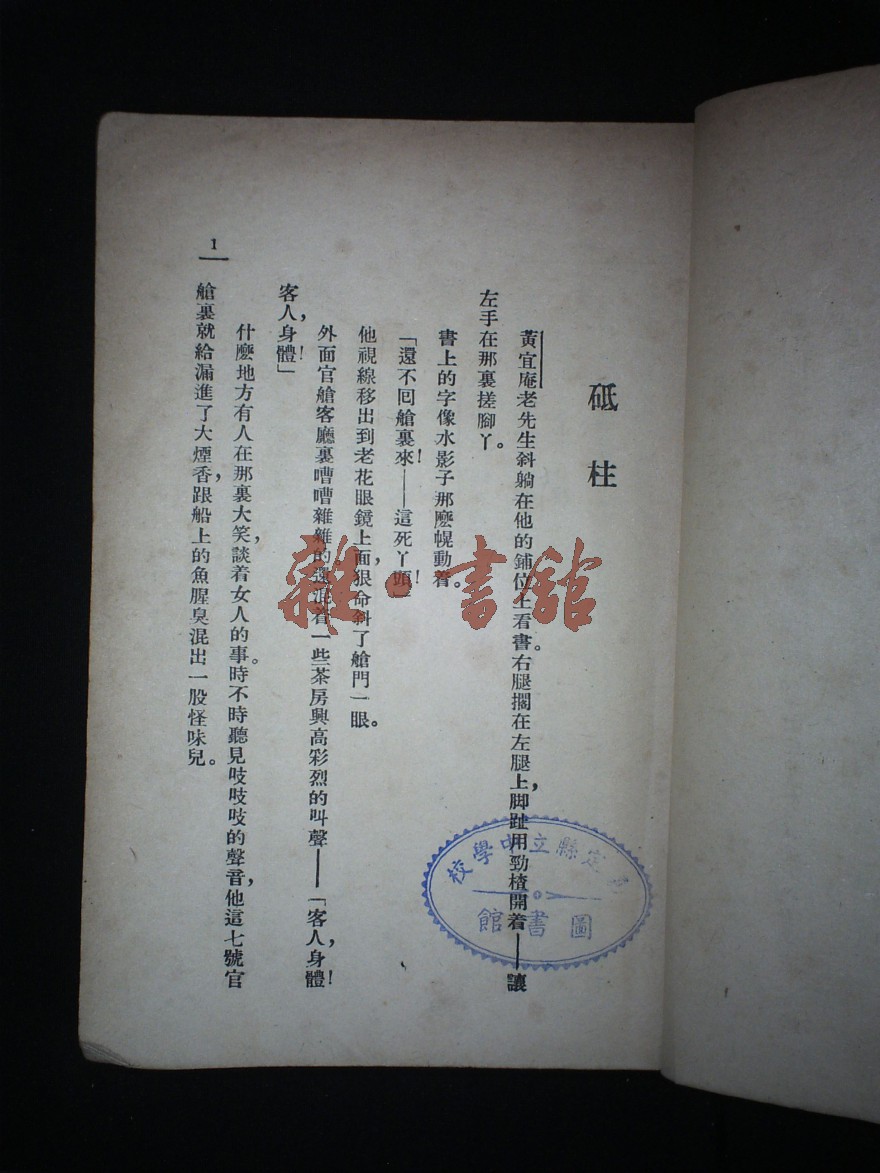 砥柱
黃宜庵老先生斜躺在他的鋪位上看書。右腿擱在左腿上，脚趾用勁楂開着——讓
左手在那裏搓腳丫。
書上的字像水影子那麽幌動着。
「還不囘艙裏來！——這死丫頭！
他視線移出到老花眼鏡上面，狠命斜了艙門一眼。
外面官艙客廳裏嘈嘈雜雜的，還混着一些茶房興高彩烈的叫聲——「客人，身體！
客人，身體！」
什麽地方有人在那裏大笑，談着女人的事。時不時聽見吱吱吱的聲音，他這七號官
艙裏就給漏進了大煙香，跟船上的魚腥臭混出一股怪味兒。
1
雜·書館
定縣立中學校
圖書館